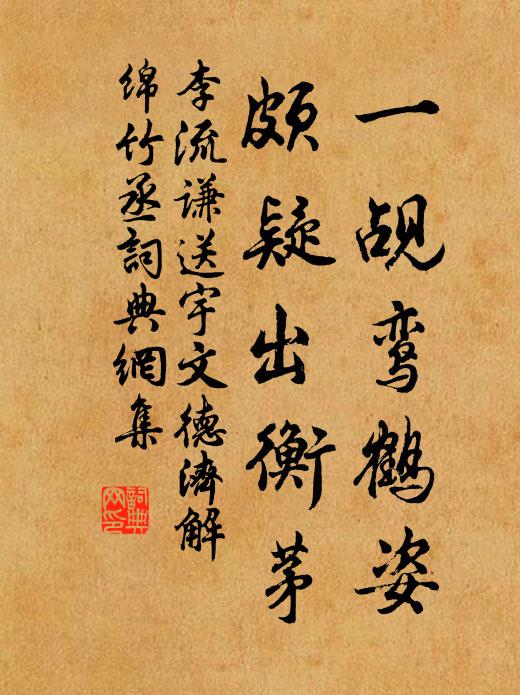 一觇鸾鹤姿
颇疑出衡茅
李流谦送宇文德济解
绵竹丞詞典網集
詞典
网印